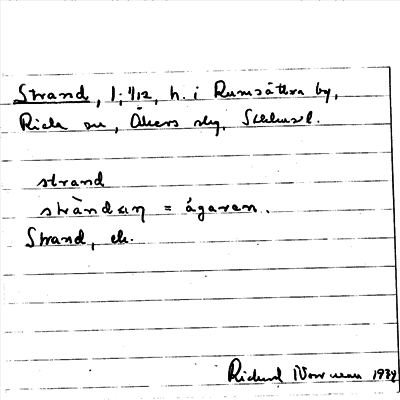 Strand, 1; 1/12, h. i Rumsättra by,
Riala sn, Åkers skg, Sthlms l.
strand
stràndaη = ägaren.
Strand, ek.
Richard 1934